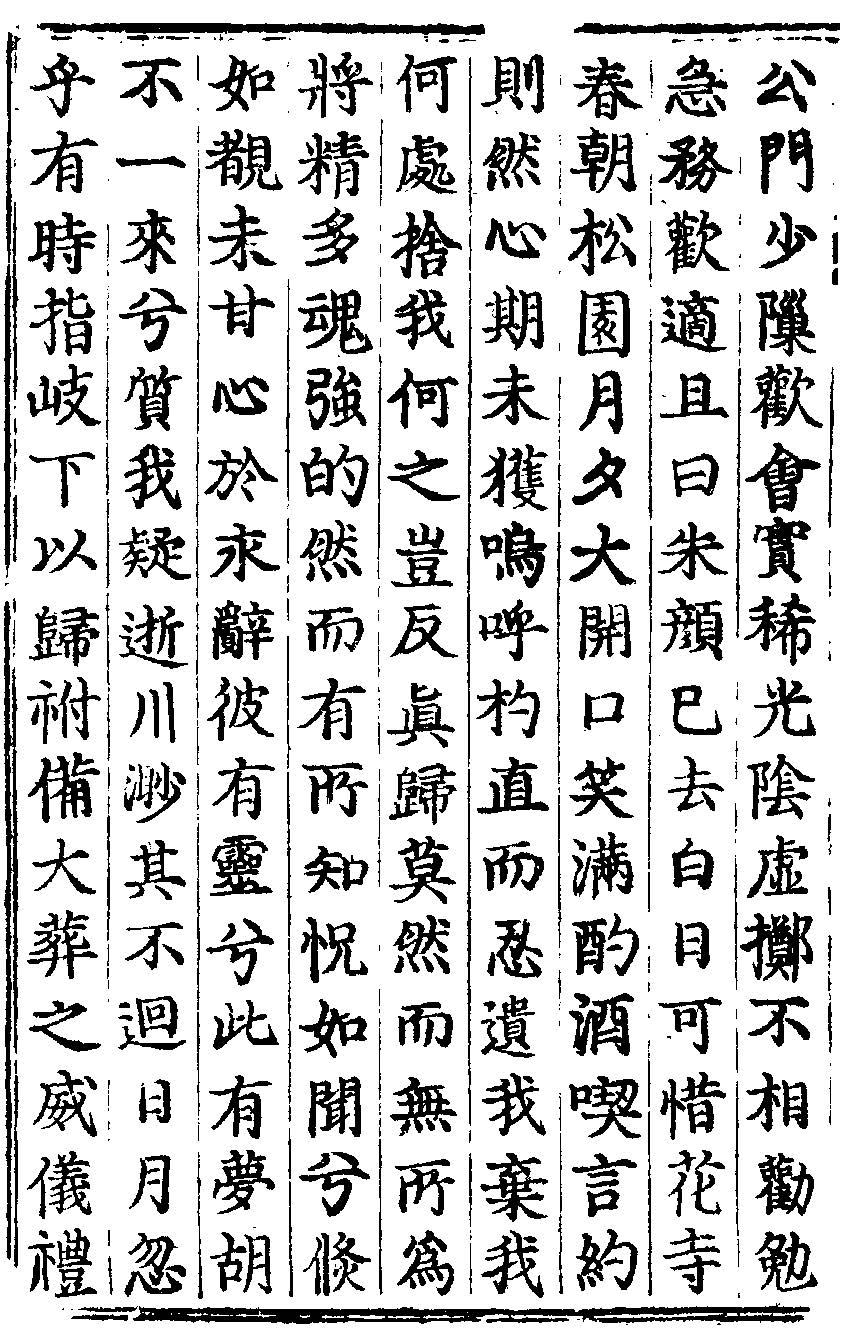 公門少隟歡會實稀光陰虛擲不相勸勉
急務歡適且曰朱顔已去白日可惜花寺
春朝松園月夕大開口笑滿酌酒喫言約
則然心期未獲嗚呼杓直而忍遺我棄我
何處捨我何之豈反眞歸莫然而無所爲
將精多魂強的然而有所知怳如聞兮倐
如覩未甘心於永辭彼有靈兮此有夢胡
不一來兮質我疑逝川渺其不迴日月忽
乎有時指岐下以歸祔備大葬之威儀禮